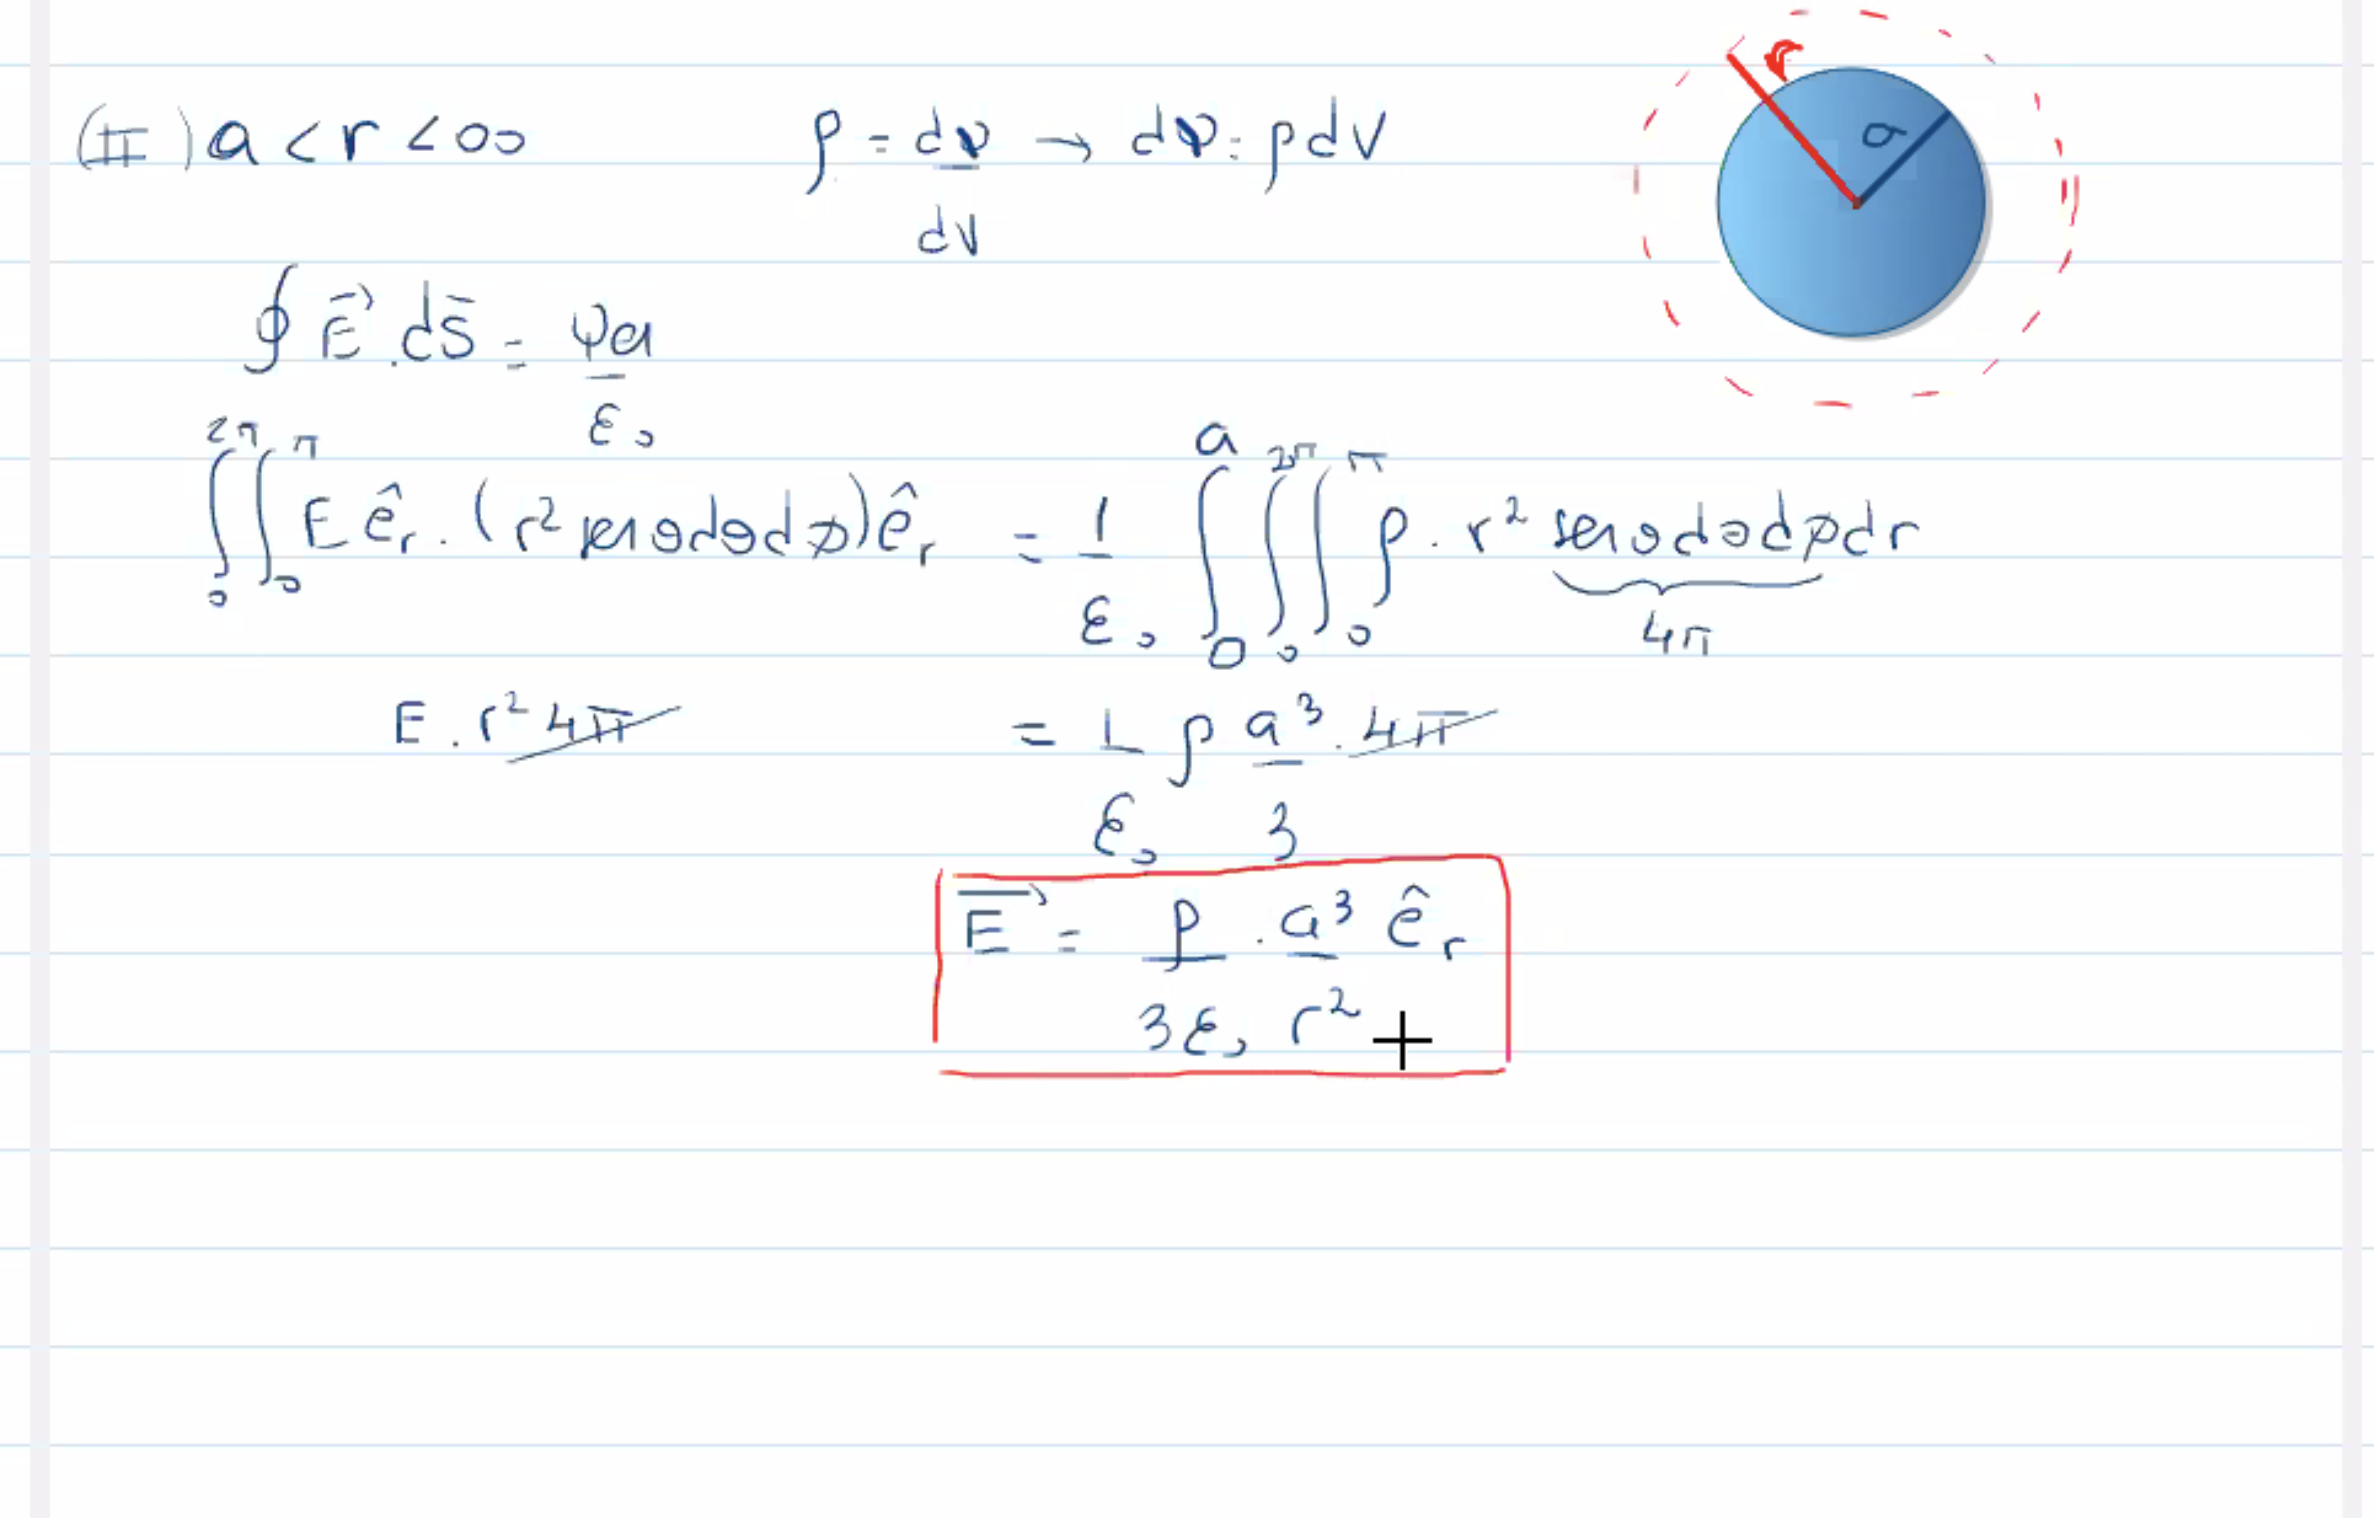 (II) a < r < ∞
ρ = dq/dV → dq = ρ dV
r
a
∮ E⃗ . dS̄ = qen/ε₀
∫₀^2π ∫₀^π E êᵣ . (r² senθ dθ dφ) êᵣ = 1/ε₀ ∫₀^a ∫₀^2π ∫₀^π ρ . r² senθ dθ dφ dr
4π
E . r² 4π = 1/ε₀ ρ a³/3 . 4π
E⃗ = ρ/3ε₀ . a³/r² êᵣ